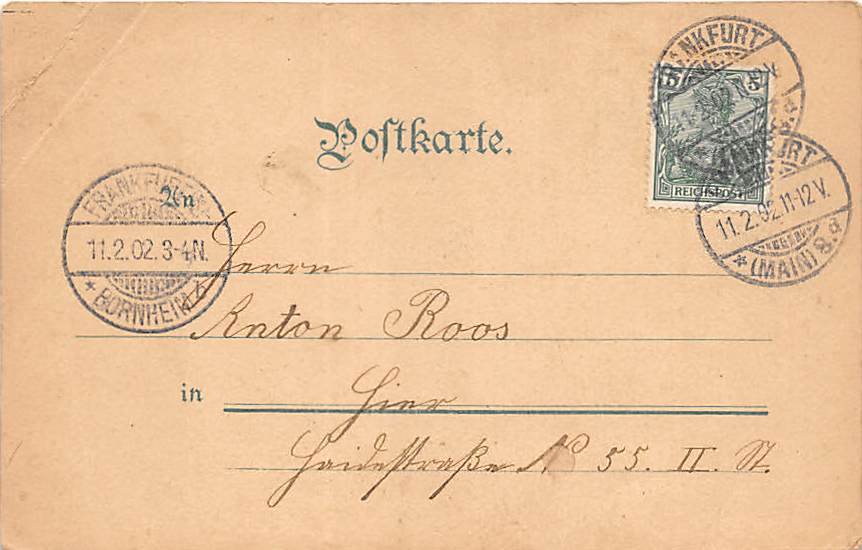 FRANKFURT
5 5
REICHSPOST
Postkarte.
FRANKFURT
11.2.02.11-12V.
* (MAIN) 8.d
An
FRANKFURT
11.2.02.3-4N.
* BORNHEIM
Herrn
Anton Roos
in Hier
Haidestraße No 55. II. St.